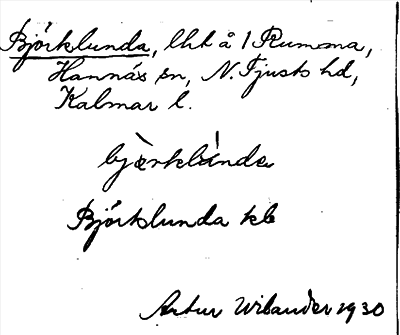 Björklunda, lht å 1 Rumma,
Hannäs sn, N. Tjusts hd,
Kalmar l.
bjærklúnda
Björklunda kb
Artur Wilander 1930